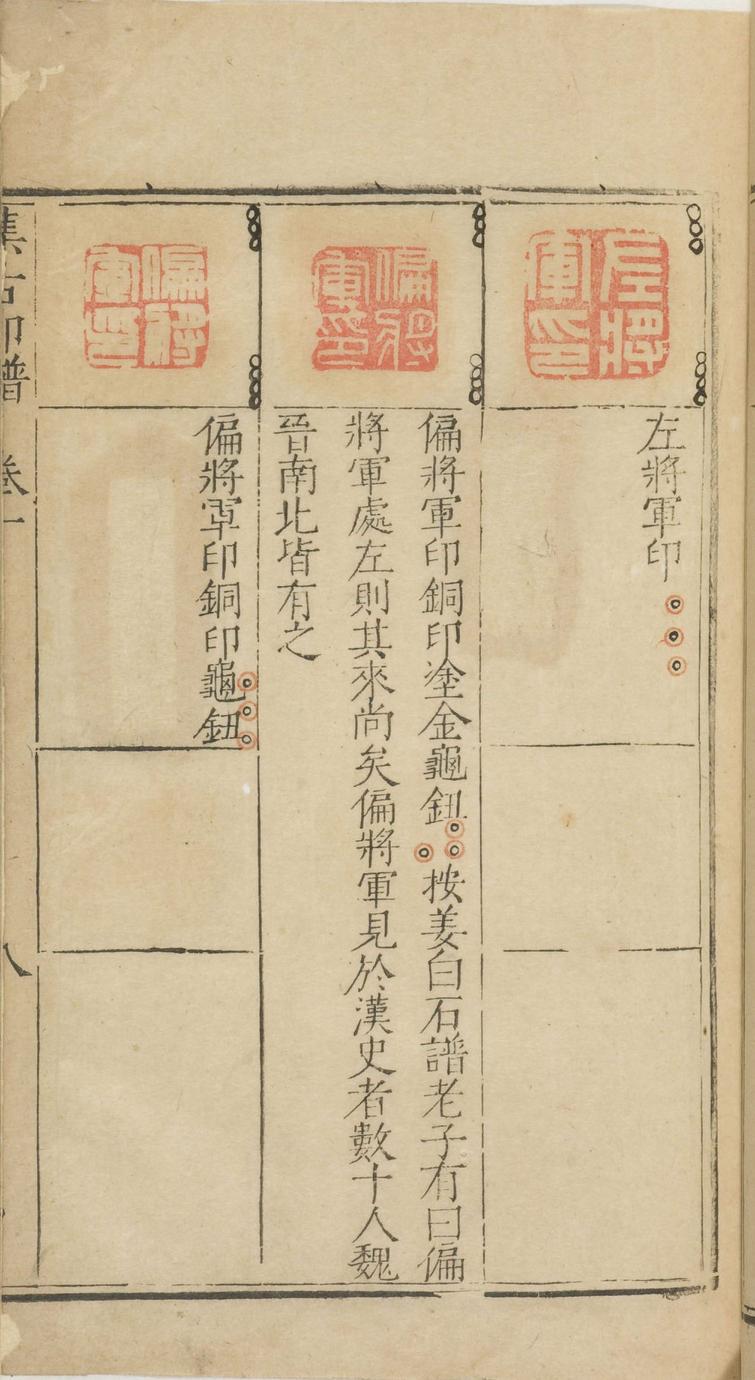 左將軍印
左將軍印
偏將軍印
偏將軍印銅印塗金龜鈕
按姜白石譜老子有曰偏
將軍處左則其來尚矣偏將軍見於漢史者數十人魏
晉南北皆有之
偏將軍印
偏將軍印銅印龜鈕
集古印譜 卷一
八